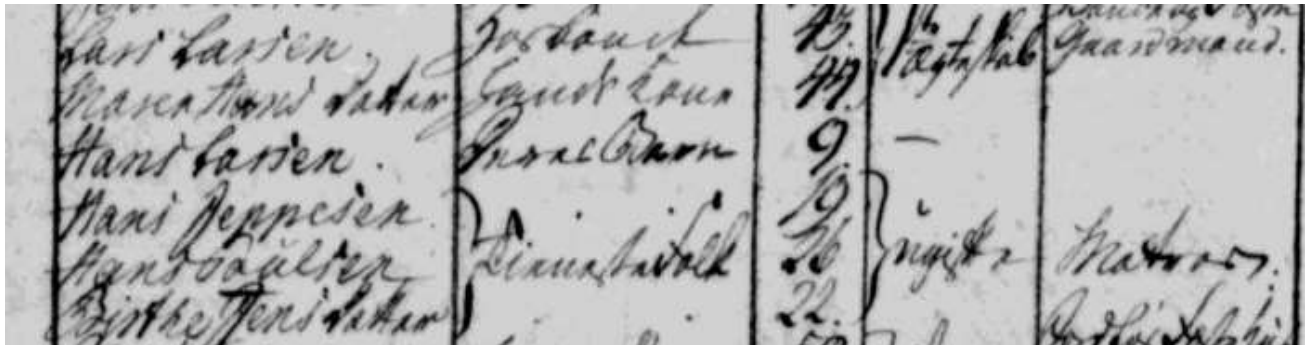 Lars Larsen. Hosbond 43. Ægteskab Gaardmand.
Maren Hans Datter Hands Kone 44.
Hans Larsen. Deres Barn 9. —
Hans Jeppesen 19
Hans Poulsen Tienestefolk 26 ugifte Matros.
Birthe Jens Datter 22.